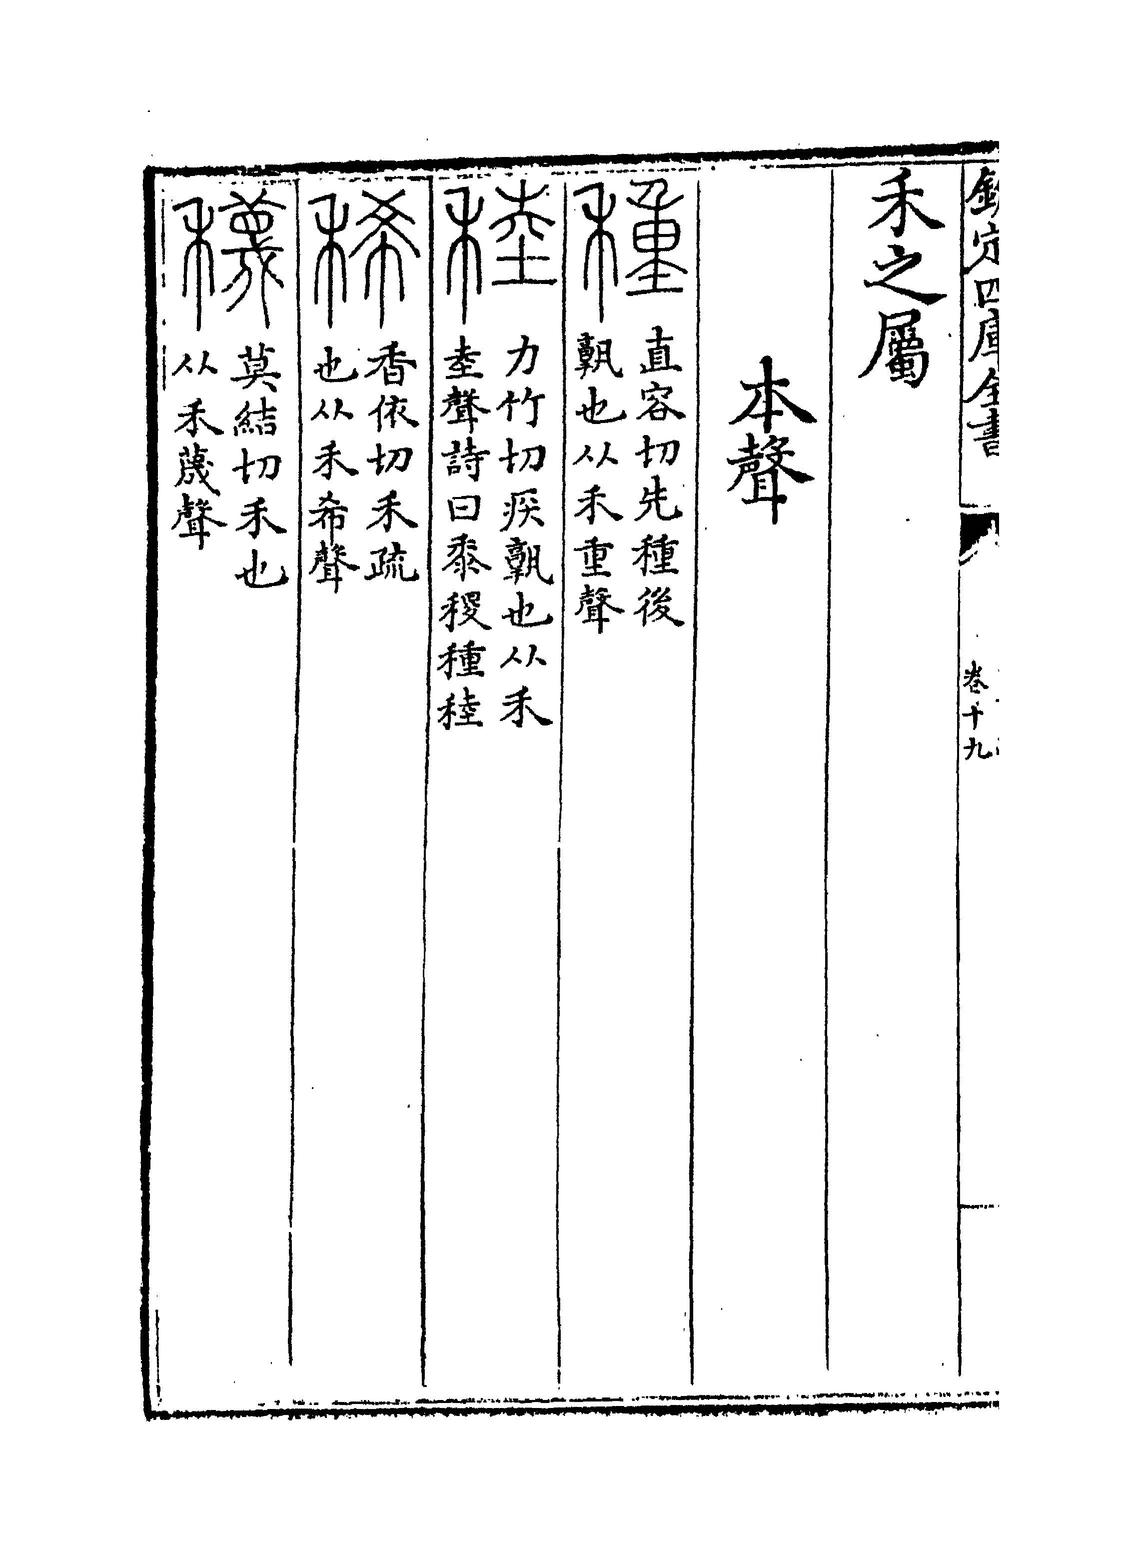 欽定四庫全書
卷十九
禾之屬
本聲
種
直容切先種後
孰也从禾重聲
稑
力竹切疾孰也从禾
坴聲詩曰黍稷種稑
稀
香依切禾疏
也从禾希聲
穖
莫結切禾也
从禾蔑聲